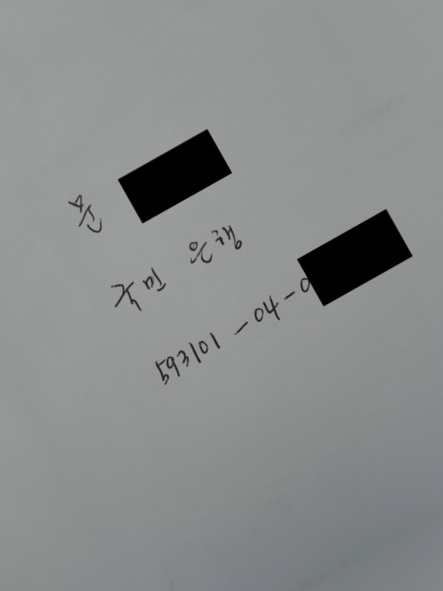 윤
국민 은행
593101-04-0